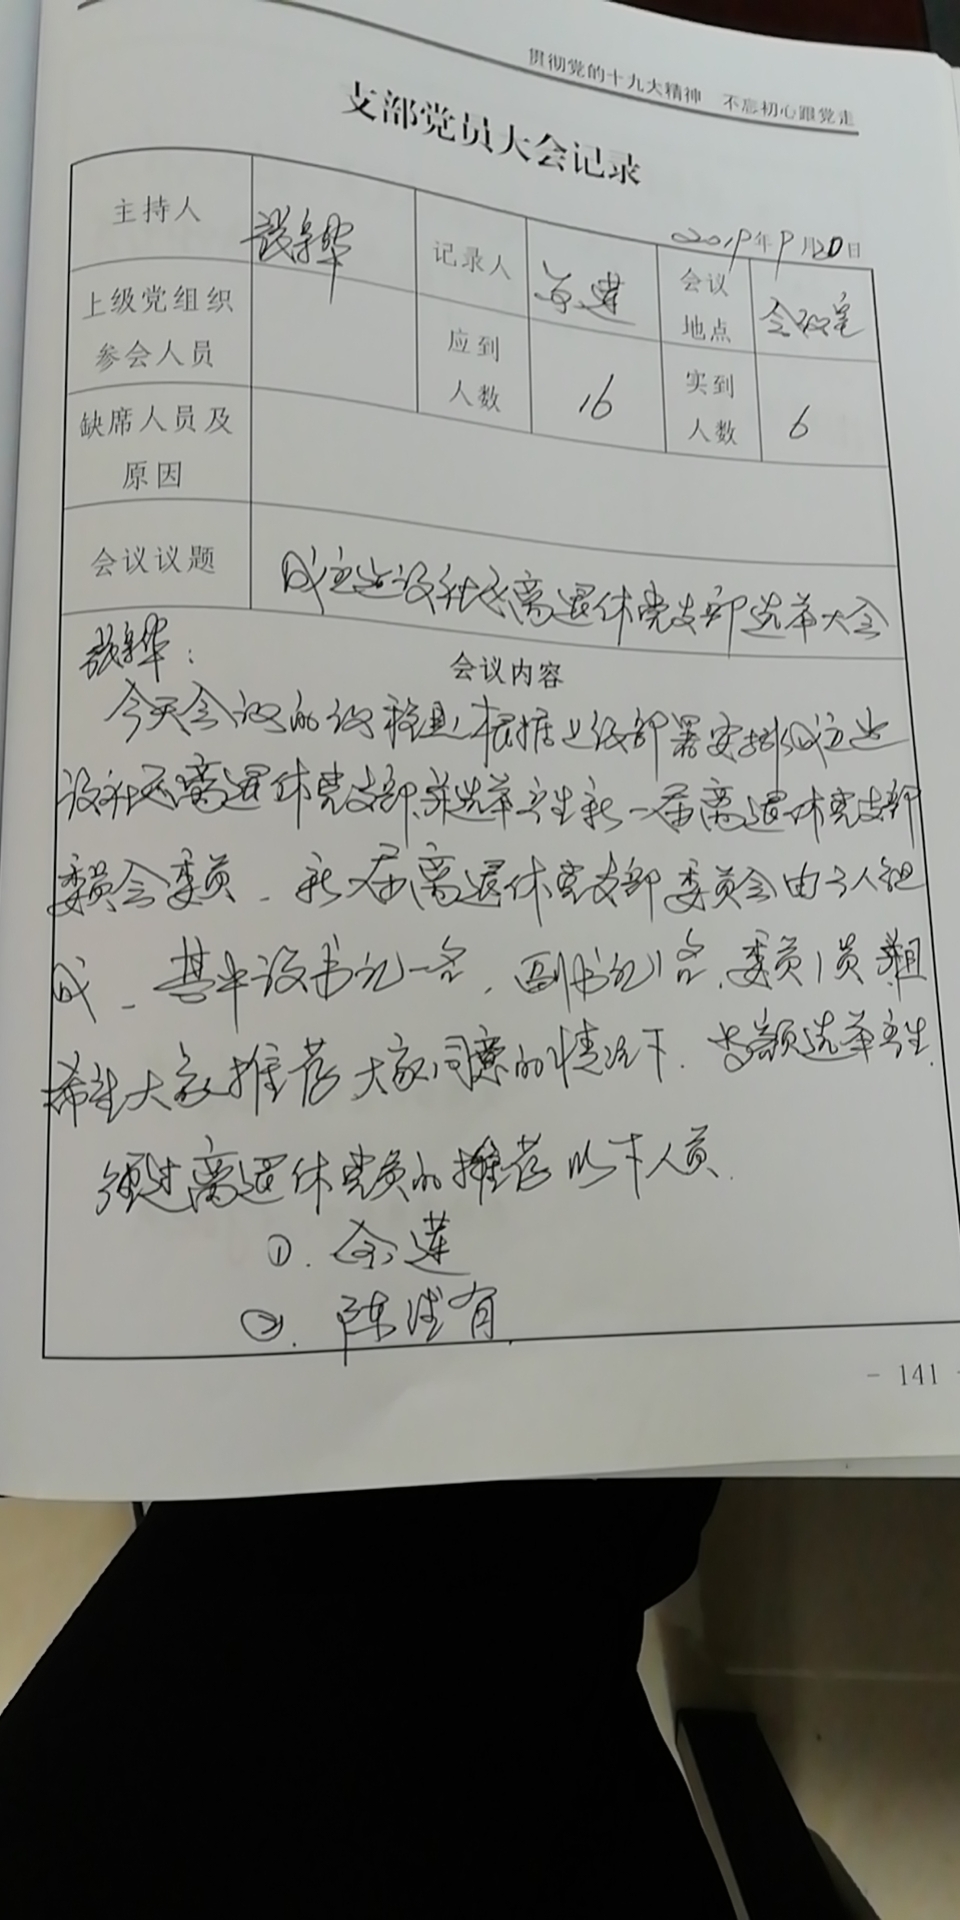 贯彻党的十九大精神 不忘初心跟党走
支部党员大会记录
2019年9月20日
主持人 记录人 会议地点 会议室
上级党组织参会人员 应到人数 16 实到人数 6
缺席人员及原因
会议议题 成立 设社区离退休党支部选举大会
会议内容
今天会议的议程是,根据上级部署安排成立
设社区离退休党支部,并选举产生新一届离退休党支部
委员会委员、新一届离退休党支部委员会由3人组
成、其中设书记一名,副书记1名,委员1员
希望大家推荐大家同意的情况下. 选举产生.
通过离退休党员的推荐以下人员.
①. 余莲
②. 陈 有
- 141